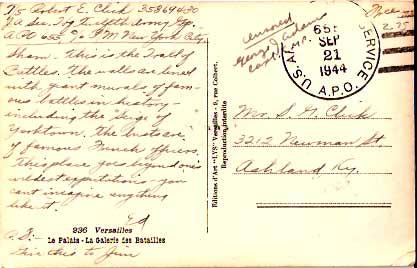 T/5 Robert E. Click 35869430
Hq. Sec. Twelfth Army Gp.
A.P.O. 655, % P.M. New York City
This is the Hall of
Battles. The walls are lined
with giant murals of fam-
ous battles in history -
including the Siege of
Yorktown. The busts are
of famous French officers.
This place goes beyond one's
wildest expectations - you
can't imagine anything
like it.
Ed
236 Versailles
Le Palais - La Galerie des Batailles
P.S.
Give this to Jim
Editions d'Art "LYS" Versailles - 8, rue Colbert.
Reproduction interdite
censored
George Adams
Capt.
U.S. ARMY POSTAL SERVICE
A.P.O.
655
SEP
21
1944
Mrs. S. H. Click
3212 Newman St.
Ashland Ky.